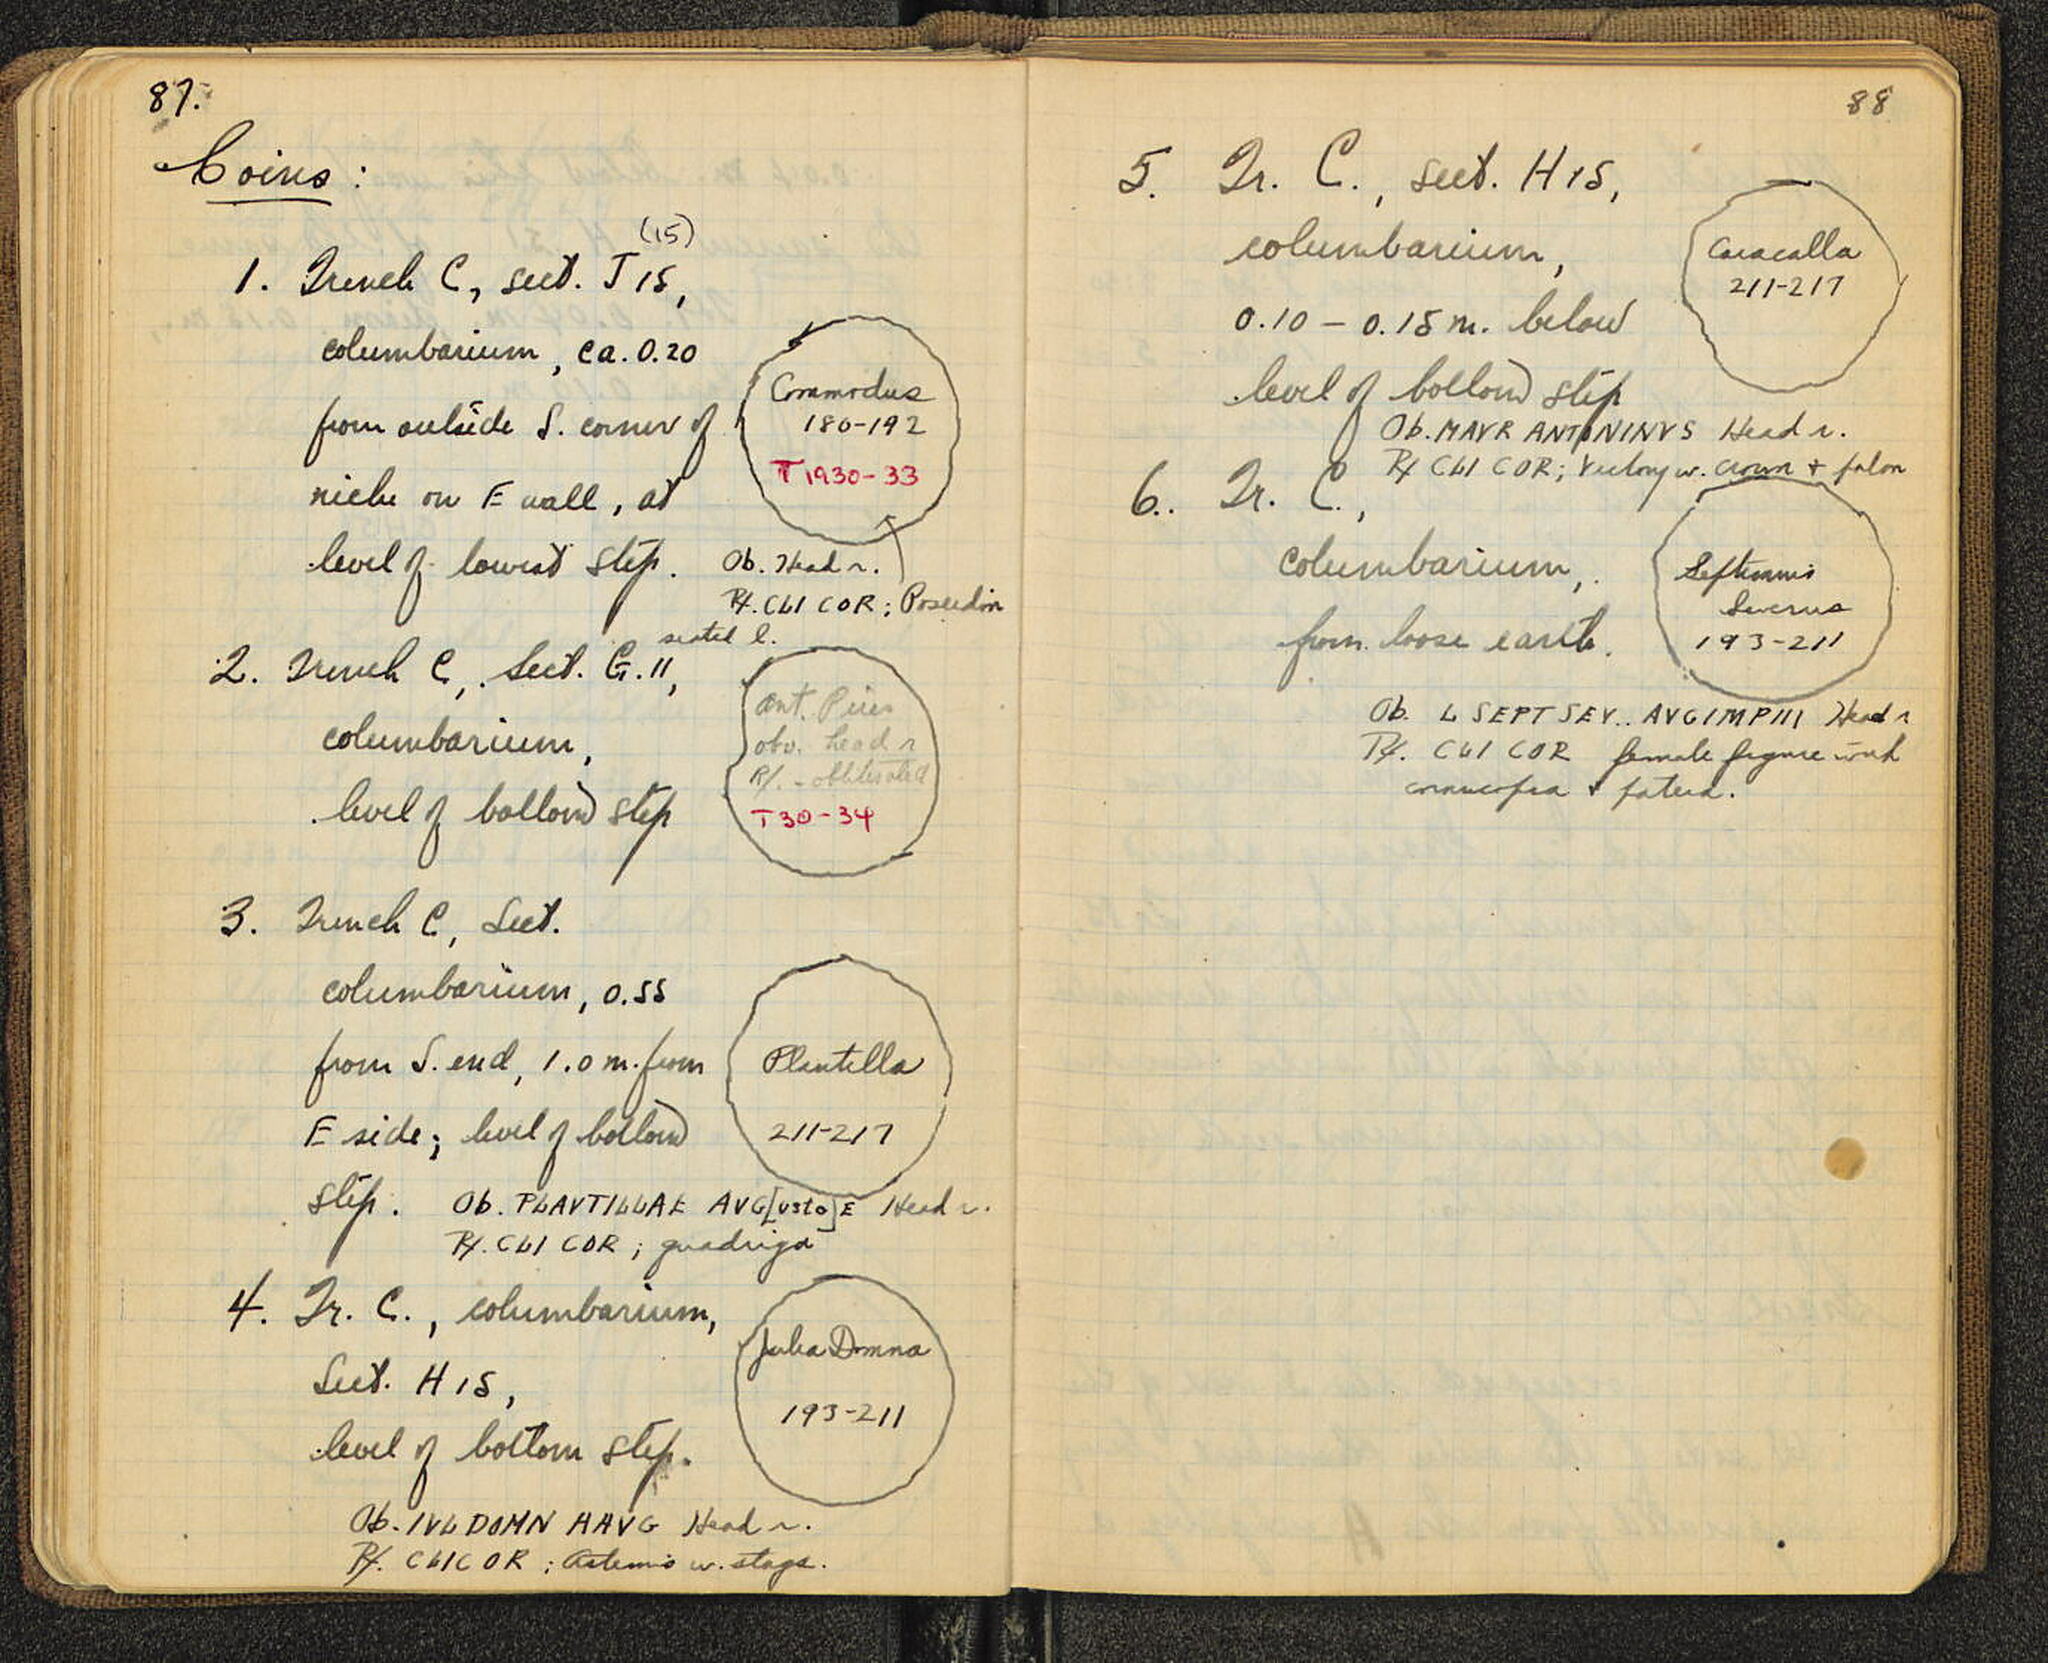 87.
Coins:
(15)
1. Trench C, sect. J 15,
columbarium, ca. 0.20
from outside S. corner of
niche on E wall, at
level of lowest step.
Commodus
180-192
T 1930-33
Ob. Head r.
R/. CLI COR; Poseidon
seated l.
2. Trench C, Sect. G.11,
columbarium,
level of bottom step
Ant. Pius
obv. head r
R/. - obliterated
T 30-34
3. Trench C, Sect.
columbarium, 0.55
from S. end, 1.0 m. from
E side; level of bottom
step.
Plautilla
211-217
Ob. PLAVTILLAE AVG[usta]E Head r.
R/. CLI COR; quadriga
4. Tr. C., columbarium,
Sect. H 15,
level of bottom step.
Julia Domna
193-211
Ob. IVL DOMN AAVG Head r.
R/. CLICOR; Artemis w. stags.
88
5. Tr. C., sect. H15,
columbarium,
0.10 - 0.15 m. below
level of bottom step
Caracalla
211-217
Ob. MAVR ANTONINVS Head r.
R/ CLI COR; Victory w. crown + palm
6. Tr. C.,
columbarium,
from loose earth.
Septimius
Severus
193-211
Ob. L SEPT SEV.. AVG IMP III Head r
R/. CLI COR female figure with
cornucopia + patera.